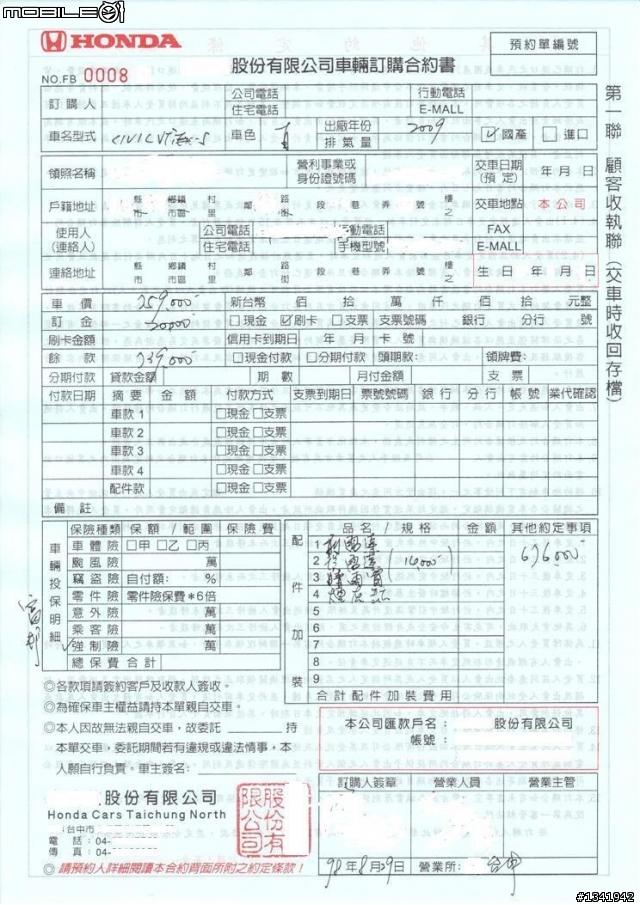 MOBILE01
HONDA
預約單編號
NO.FB 0008
股份有限公司車輛訂購合約書
第一聯 顧客收執聯（交車時收回存檔）
訂購人 公司電話 行動電話
住宅電話 E-MALL
車名型式 CIVIC VTi-S 車色 出廠年份 2009 ☑國產 □進口
排氣量
領照名稱 營利事業或身份證號碼 交車日期（預定） 年 月 日
戶籍地址 縣市 鄉鎮市 村里 鄰 路街 段 巷 弄 號 樓之 交車地點 本公司
使用人（連絡人） 公司電話 行動電話 FAX
住宅電話 手機型號 E-MALL
連絡地址 縣市 鄉鎮市 村里 鄰 路街 段 巷 弄 號 樓之 生日 年 月 日
車價 759,000 新台幣 佰 拾 萬 仟 佰 拾 元整
訂金 20000 □現金 ☑刷卡 □支票 支票號碼 銀行 分行 號
刷卡金額 信用卡到期日 年 月 卡號
餘款 739,000 □現金付款 □分期付款 頭期款: 領牌費:
分期付款 貸款金額 期數 月付金額 支票
付款日期 摘要 金額 付款方式 支票到期日 票號號碼 銀行 分行 帳號 業代確認
車款1 □現金□支票
車款2 □現金□支票
車款3 □現金□支票
車款4 □現金□支票
配件款 □現金□支票
備註
車輛投保明細
保險種類 保額/範圍 保險費
車體險 □甲□乙□丙
颱風險 萬
竊盜險 自付額: %
零件險 零件險保費*6倍
意外險 萬
乘客險 萬
強制險 萬
總保費合計
富邦
配件加裝
品名/規格 金額 其他約定事項
1
2 (16,000) 676,000
3 晴雨窗
4 煙灰缸
5
6
7
8
9
合計配件加裝費用
◎各款項請簽約客戶及收款人簽收。
◎為確保車主權益請持本單親自交車。
◎本人因故無法親自交車，故委託 持
本單交車，委託期間若有違規或違法情事，本
人願自行負責。車主簽名:
本公司匯款戶名: 股份有限公司
帳號:
股份有限公司
Honda Cars Taichung North
台中市
電話:04-
傳真:04-
股份有限公司
訂購人簽章 營業人員 營業主管
98年8月29日 營業所: 台中
◎請預約人詳細閱讀本合約背面所附之約定條款！
#1341942